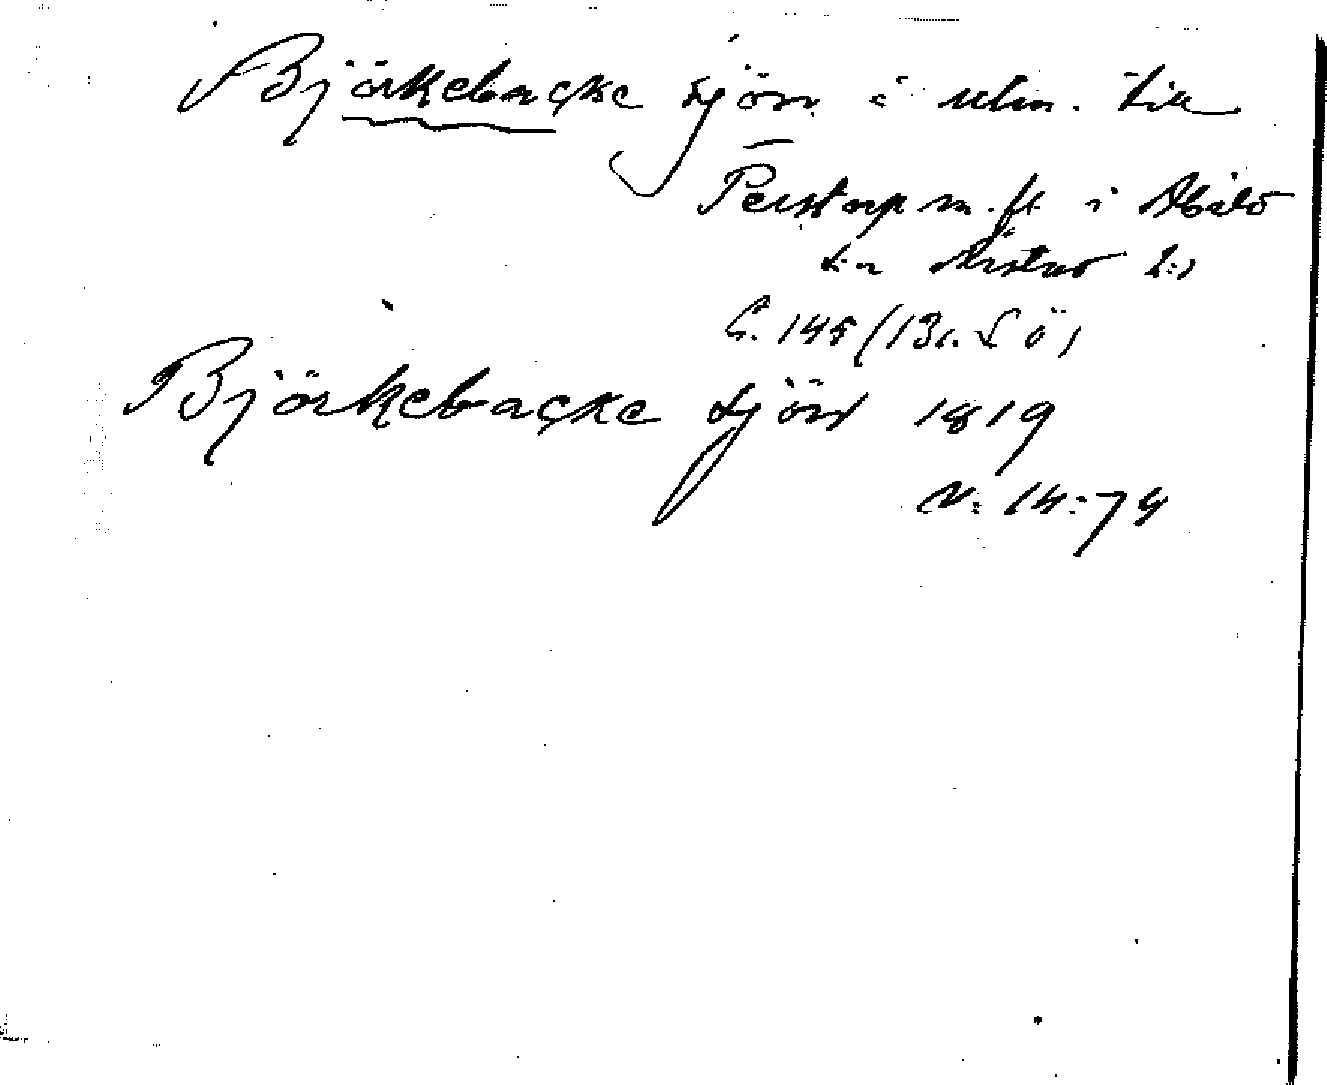 Björkebacke sjön i utm. till
Perstorp m. fl. i Abild
s:n Årstad h:d
C. 145 (131. L ö)
Björkebacke sjön 1819
N: 14:74